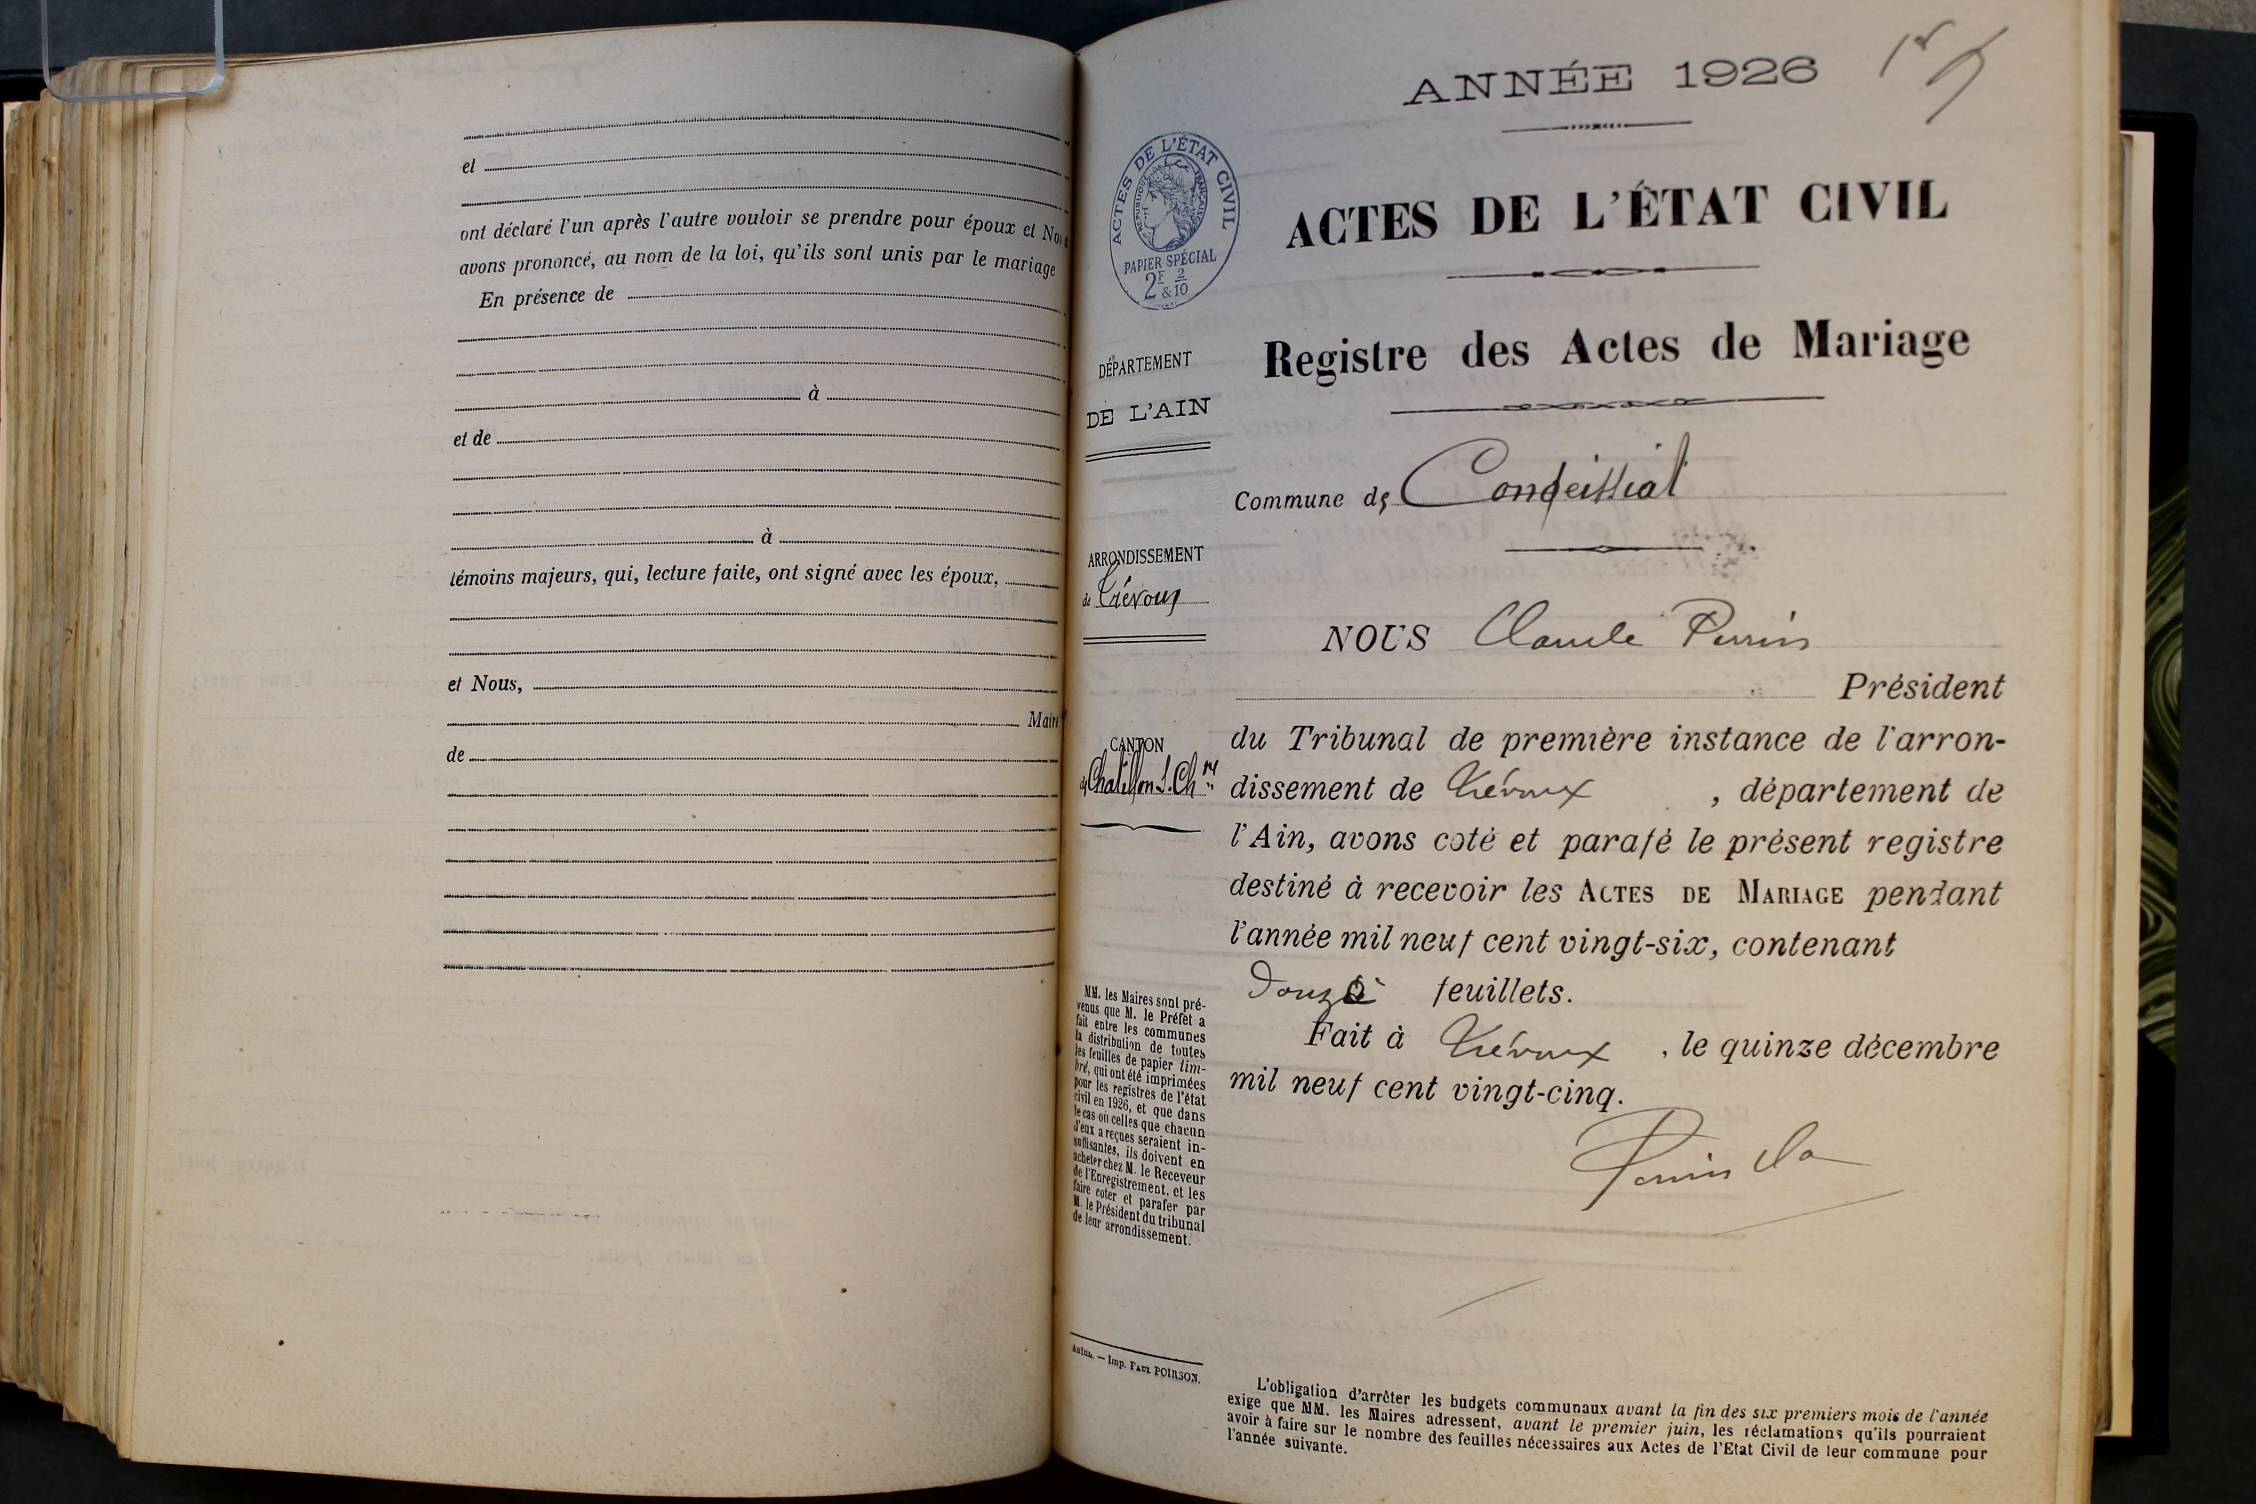 et
ont déclaré l'un après l'autre vouloir se prendre pour époux et Nous
avons prononcé, au nom de la loi, qu'ils sont unis par le mariage
En présence de
à
et de
à
témoins majeurs, qui, lecture faite, ont signé avec les époux,
et Nous,
Maire
de
ANNÉE 1926
ACTES DE L'ÉTAT CIVIL
RÉPUBLIQUE FRANÇAISE
PAPIER SPÉCIAL
2F & 2/10
ACTES DE L'ÉTAT CIVIL
Registre des Actes de Mariage
DÉPARTEMENT
DE L'AIN
Commune de Condeissiat
ARRONDISSEMENT
de Trévoux
CANTON
de Chatillon s. Chne
MM. les Maires sont pré-
venus que M. le Préfet a
fait entre les communes
la distribution de toutes
les feuilles de papier tim-
bré, qui ont été imprimées
pour les registres de l'état
civil en 1926, et que dans
le cas où celles que chacun
d'eux a reçues seraient in-
suffisantes, ils doivent en
acheter chez M. le Receveur
de l'Enregistrement, et les
faire coter et parafer par
M. le Président du tribunal
de leur arrondissement.
Autun. — Imp. PAUL POIRSON.
NOUS Claude Perrin
Président
du Tribunal de première instance de l'arron-
dissement de Trévoux , département de
l'Ain, avons coté et parafé le présent registre
destiné à recevoir les ACTES DE MARIAGE pendant
l'année mil neuf cent vingt-six, contenant
Douze feuillets.
Fait à Trévoux , le quinze décembre
mil neuf cent vingt-cinq.
Perrin Cla
L'obligation d'arrêter les budgets communaux avant la fin des six premiers mois de l'année
exige que MM. les Maires adressent, avant le premier juin, les réclamations qu'ils pourraient
avoir à faire sur le nombre des feuilles nécessaires aux Actes de l'Etat Civil de leur commune pour
l'année suivante.